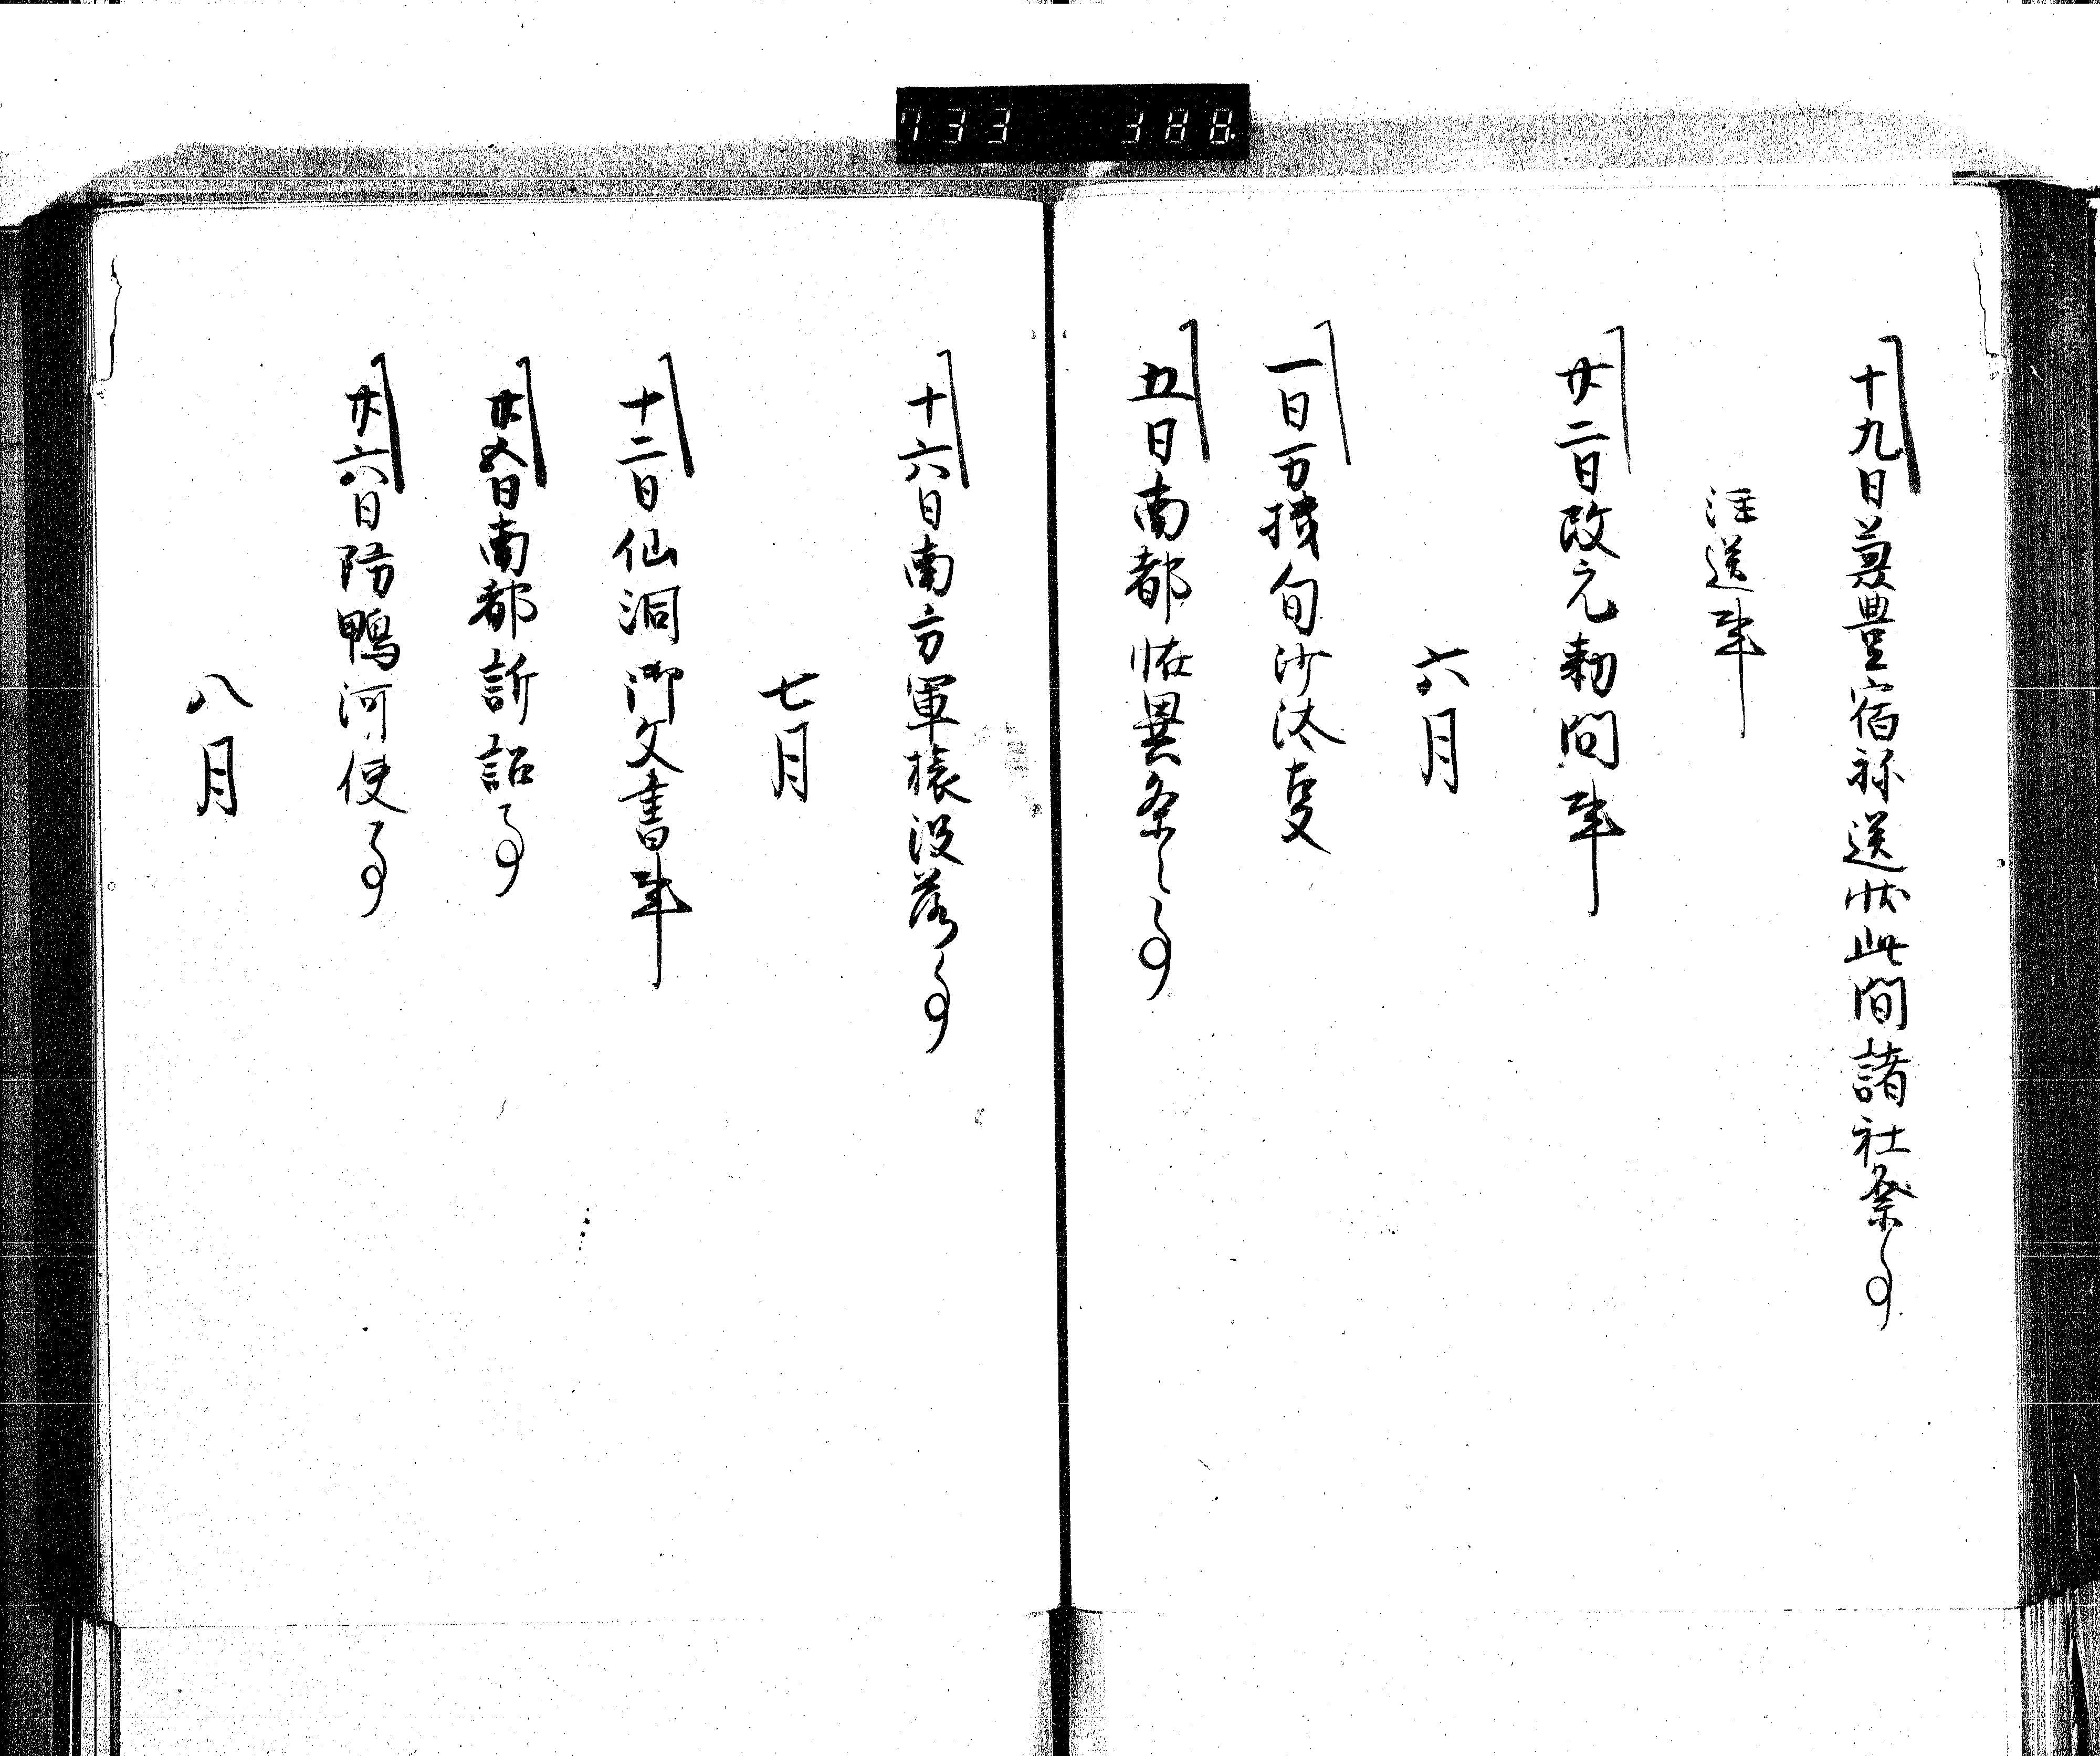 733 388
十九日兼豊宿祢送状此間諸社祭事
注送事
廿二日改元勅問事
六月
一日万機旬沙汰事
五日南都恠異条々事
十六日南方軍旅没落事
七月
十二日仙洞御文書事
廿五日南都訴詔事
廿六日防鴨河使事
八月